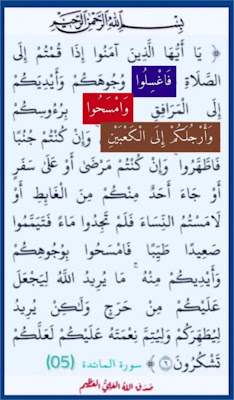 بِسْمِ اللَّهِ الرَّحْمَٰنِ الرَّحِيمِ
﴿ يَا أَيُّهَا الَّذِينَ آمَنُوا إِذَا قُمْتُمْ إِلَى
الصَّلَاةِ فَاغْسِلُوا وُجُوهَكُمْ وَأَيْدِيَكُمْ
إِلَى الْمَرَافِقِ وَامْسَحُوا بِرُءُوسِكُمْ
وَأَرْجُلَكُمْ إِلَى الْكَعْبَيْنِ وَإِنْ كُنْتُمْ جُنُبًا
فَاطَّهَّرُوا وَإِنْ كُنْتُمْ مَرْضَى أَوْ عَلَى سَفَرٍ
أَوْ جَاءَ أَحَدٌ مِنْكُمْ مِنَ الْغَائِطِ أَوْ
لَامَسْتُمُ النِّسَاءَ فَلَمْ تَجِدُوا مَاءً فَتَيَمَّمُوا
صَعِيدًا طَيِّبًا فَامْسَحُوا بِوُجُوهِكُمْ
وَأَيْدِيكُمْ مِنْهُ مَا يُرِيدُ اللَّهُ لِيَجْعَلَ
عَلَيْكُمْ مِنْ حَرَجٍ وَلَكِنْ يُرِيدُ
لِيُطَهِّرَكُمْ وَلِيُتِمَّ نِعْمَتَهُ عَلَيْكُمْ لَعَلَّكُمْ
تَشْكُرُونَ ٦ ﴾ سورة المائدة (05)
صَدَقَ اللهُ العَلِيُّ العَظِيم